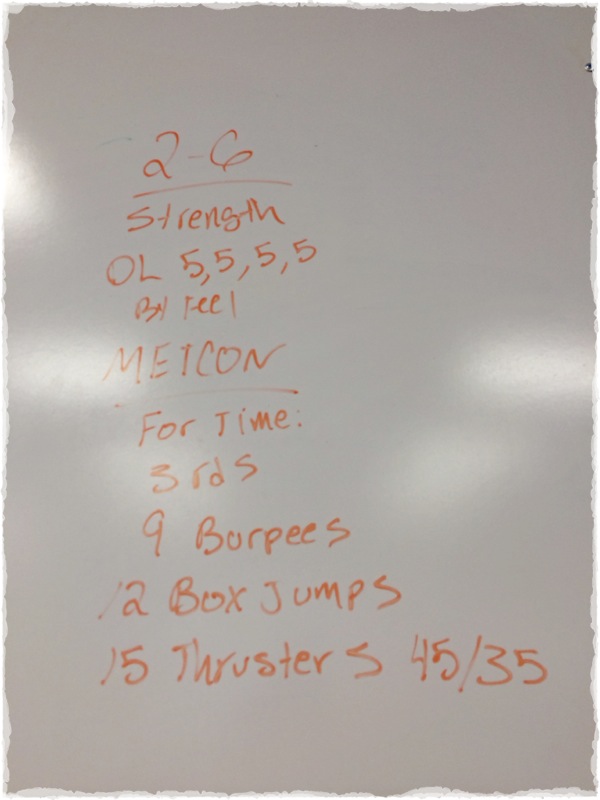 2-6
Strength
OL 5,5,5,5
By Feel
METCON
For Time:
3 rds
9 Burpees
12 Box Jumps
15 Thrusters 45/35